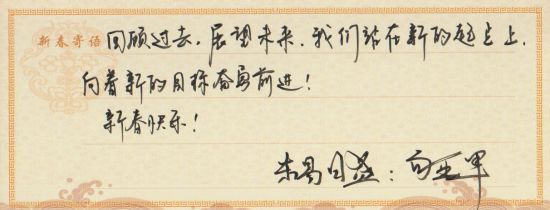 新春寄语
回顾过去，展望未来，我们站在新的起点上，
向着新的目标奋勇前进！
新春快乐！
东易日盛：白亚军